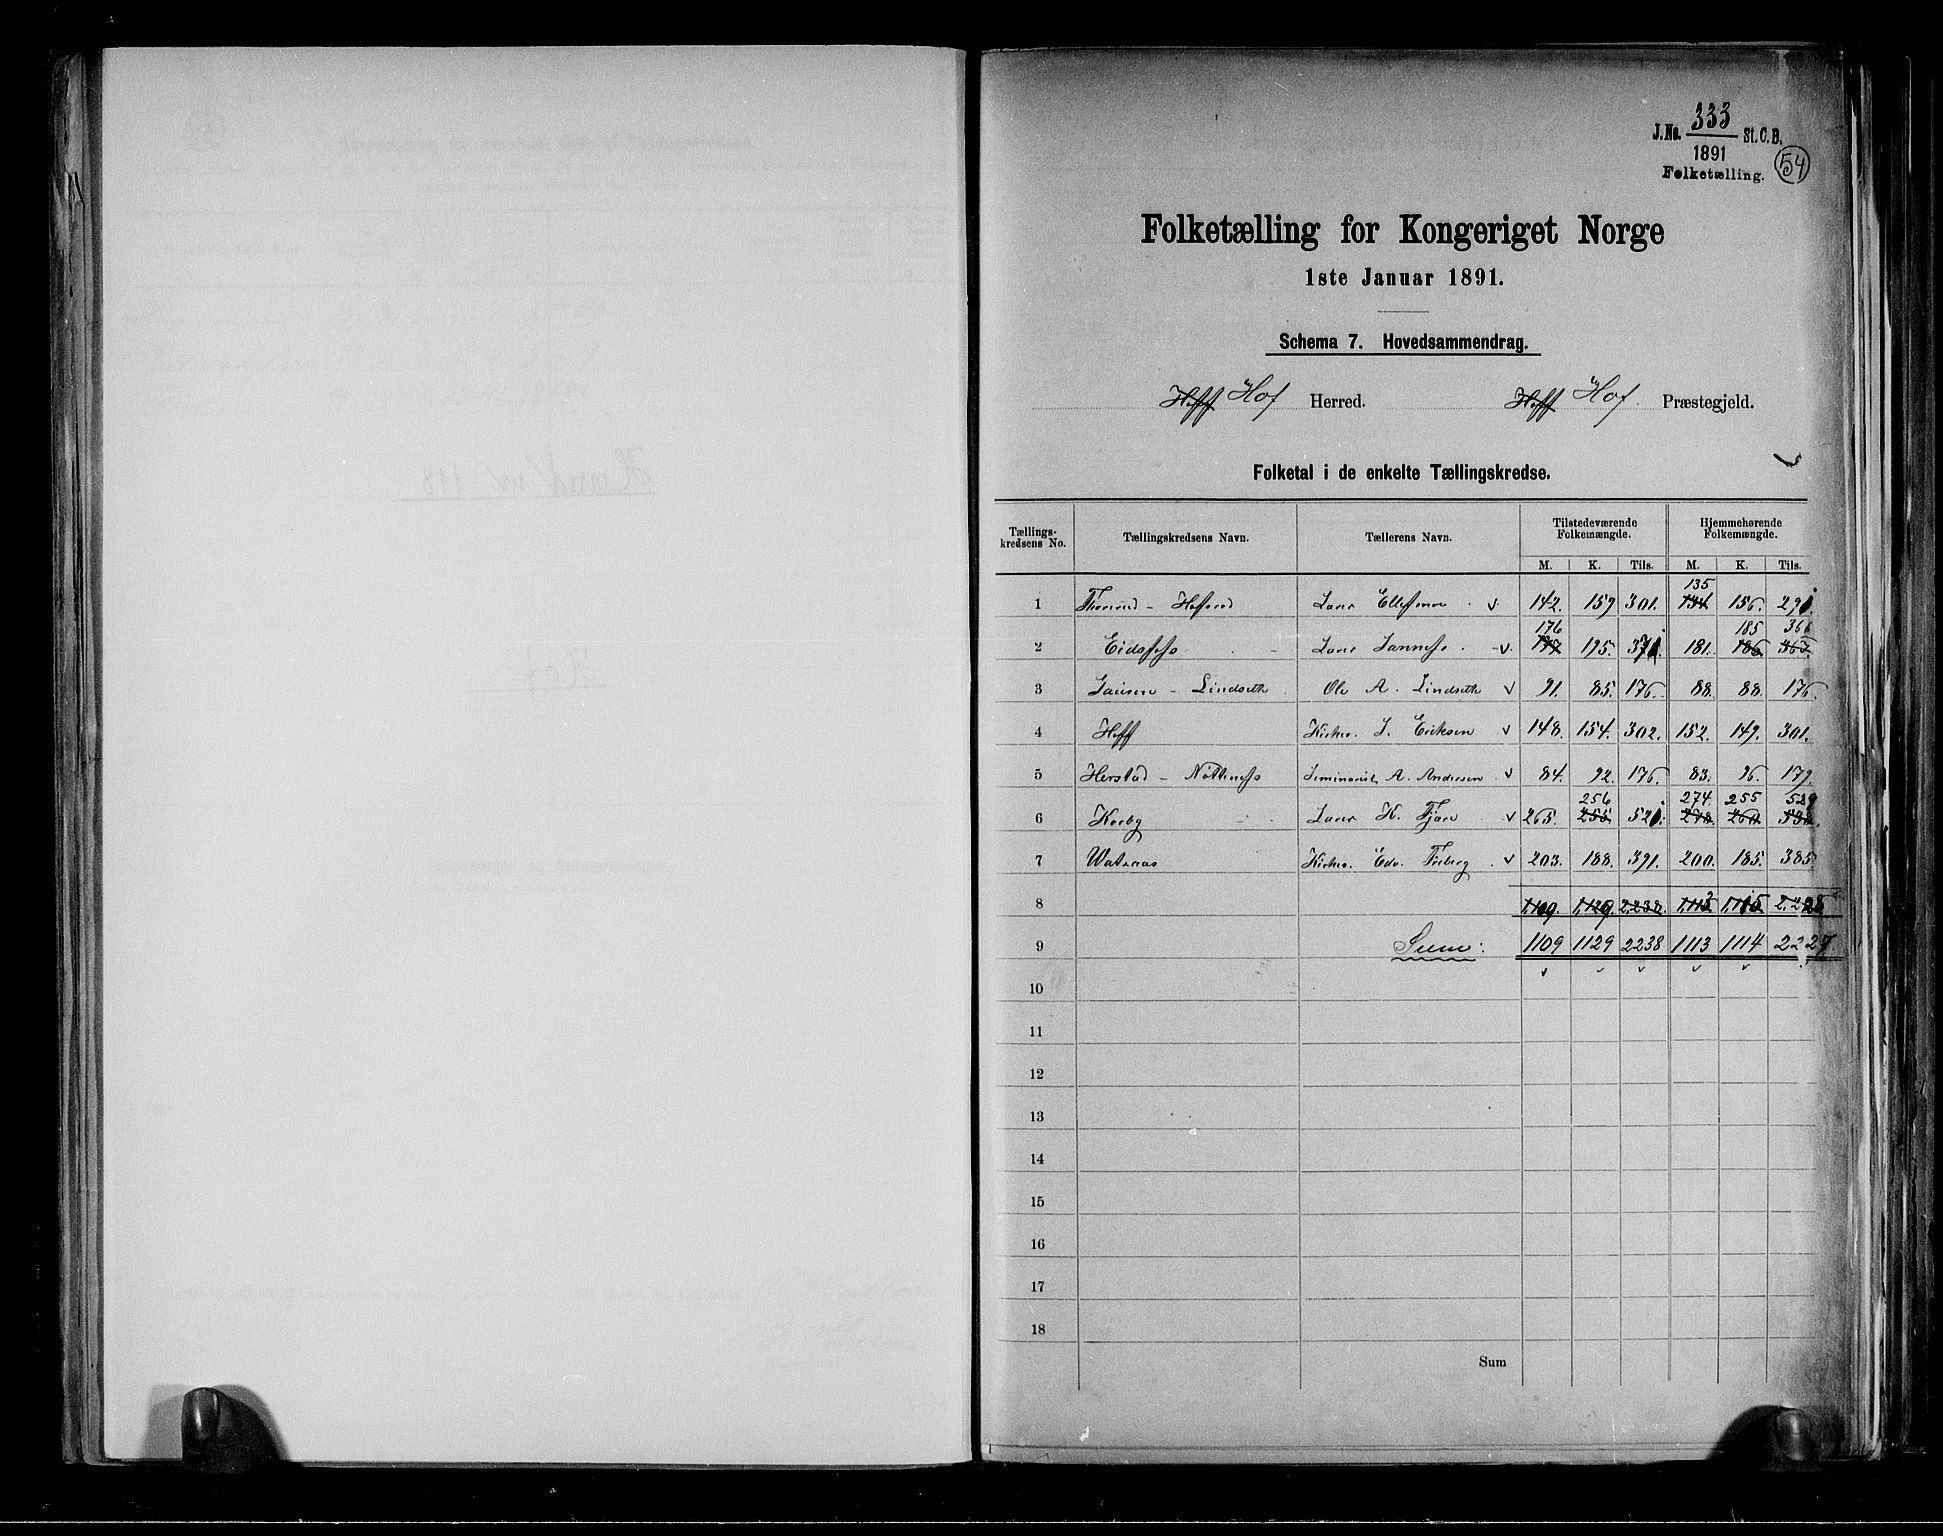 J.No. 333 St.C.B.
1891
Folketælling. 54
Folketælling for Kongeriget Norge
1ste Januar 1891.
Schema 7. Hovedsammendrag.
Hoff Hof Herred. Hoff Hof Præstegjeld.
Folketal i de enkelte Tællingskredse.
Tællings-kredsens No. Tællingskredsens Navn. Tællerens Navn. Tilstedeværende Folkemængde. Hjemmehørende Folkemængde.
M. K. Tils. M. K. Tils.
135
1 Lars Ellefsen v. 142. 159 301. 134 156. 291.
176 185 366
2 Eidsfoss Lars v. 177 195. 371. 181. 186 367.
3 Lindseth Ole A. Lindseth v 91. 85. 176. 88. 88. 176.
4 Hoff Kirkes. J. Eriksen v 148. 154. 302. 152. 149. 301.
5 Herstad - Seminarist A. Andresen v 84. 92. 176. 83. 96. 179.
256 274. 255 529
6 Korby Lars K. v 265. 255 521. 278 260
7 Kirkes. Edv. v 203. 188. 391. 200. 185. 385.
8
9 Sum: 1109 1129 2238 1113 1114 2227
10
11
12
13
14
15
16
17
18
Sum